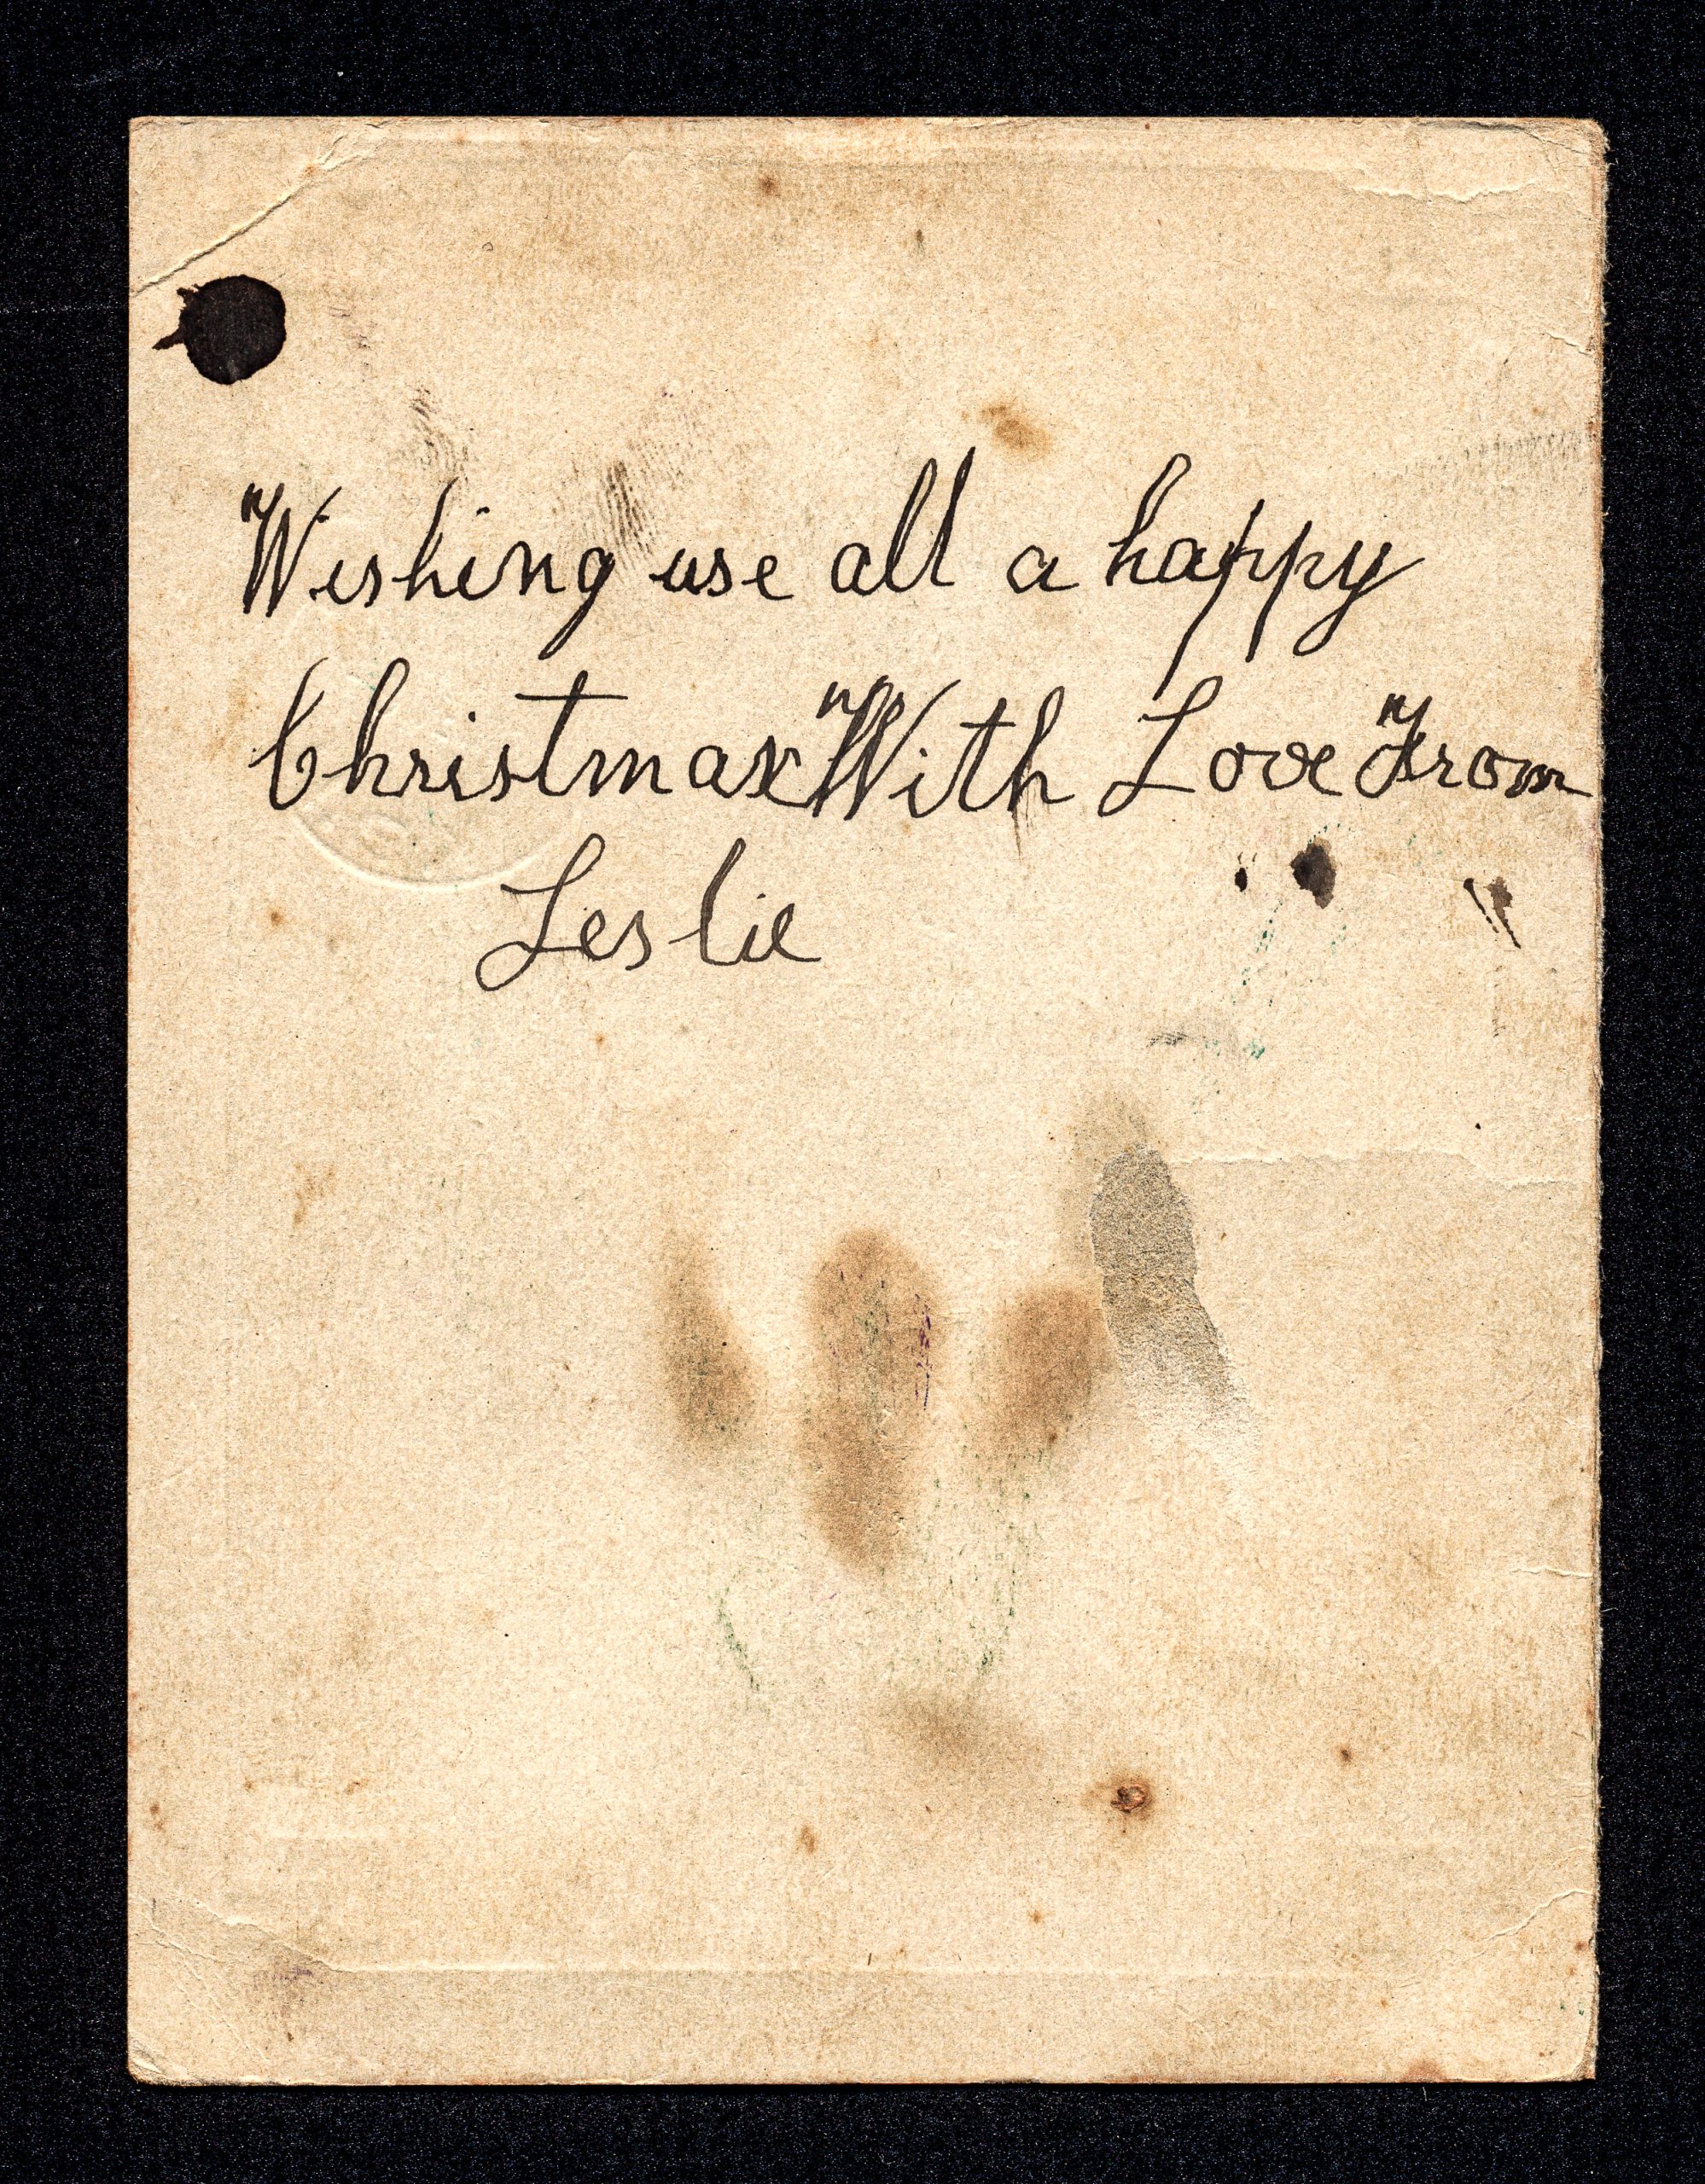 Wishing use all a happy
Christmas With Love From
Leslie